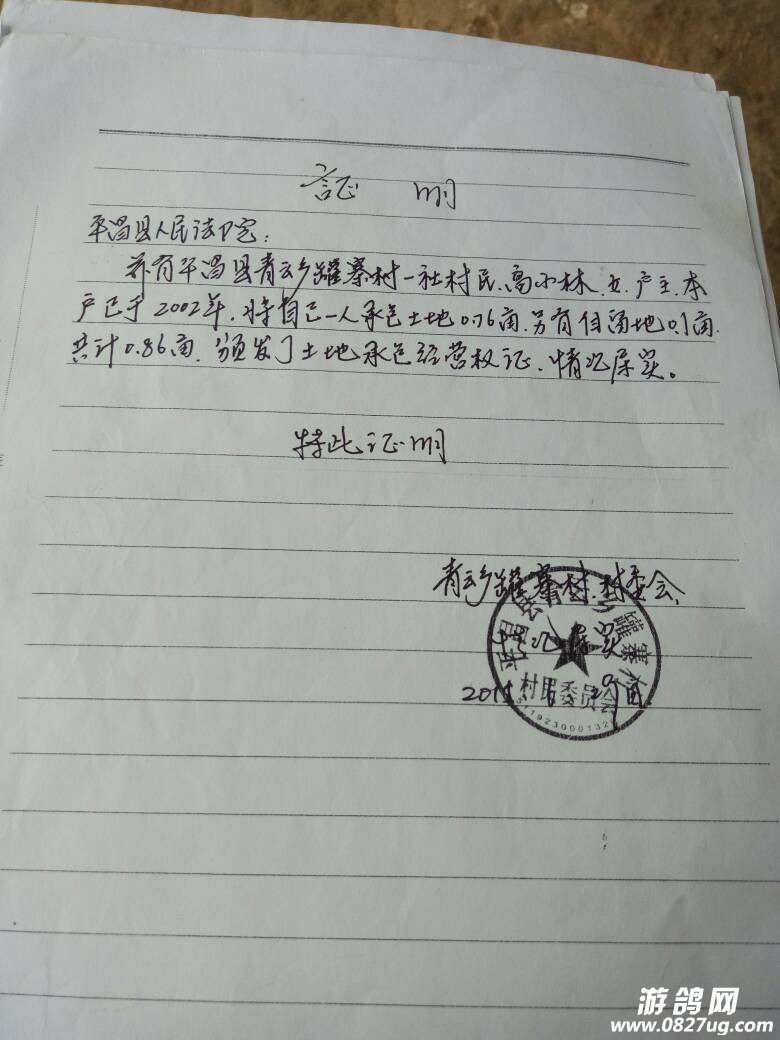 证 明
平昌县人民法院:
兹有平昌县青云乡罐寨村一社村民、高小林、女、户主、本
户已于2002年、将自己一人承包土地0.76亩、另有 地0.1亩.
共计0.86亩、颁发了土地承包经营权证、情况属实。
特此证明
青云乡罐寨村、村委会
情况属实
平昌县 乡罐寨村
村民委员会
游鸽网
www.0827ug.com